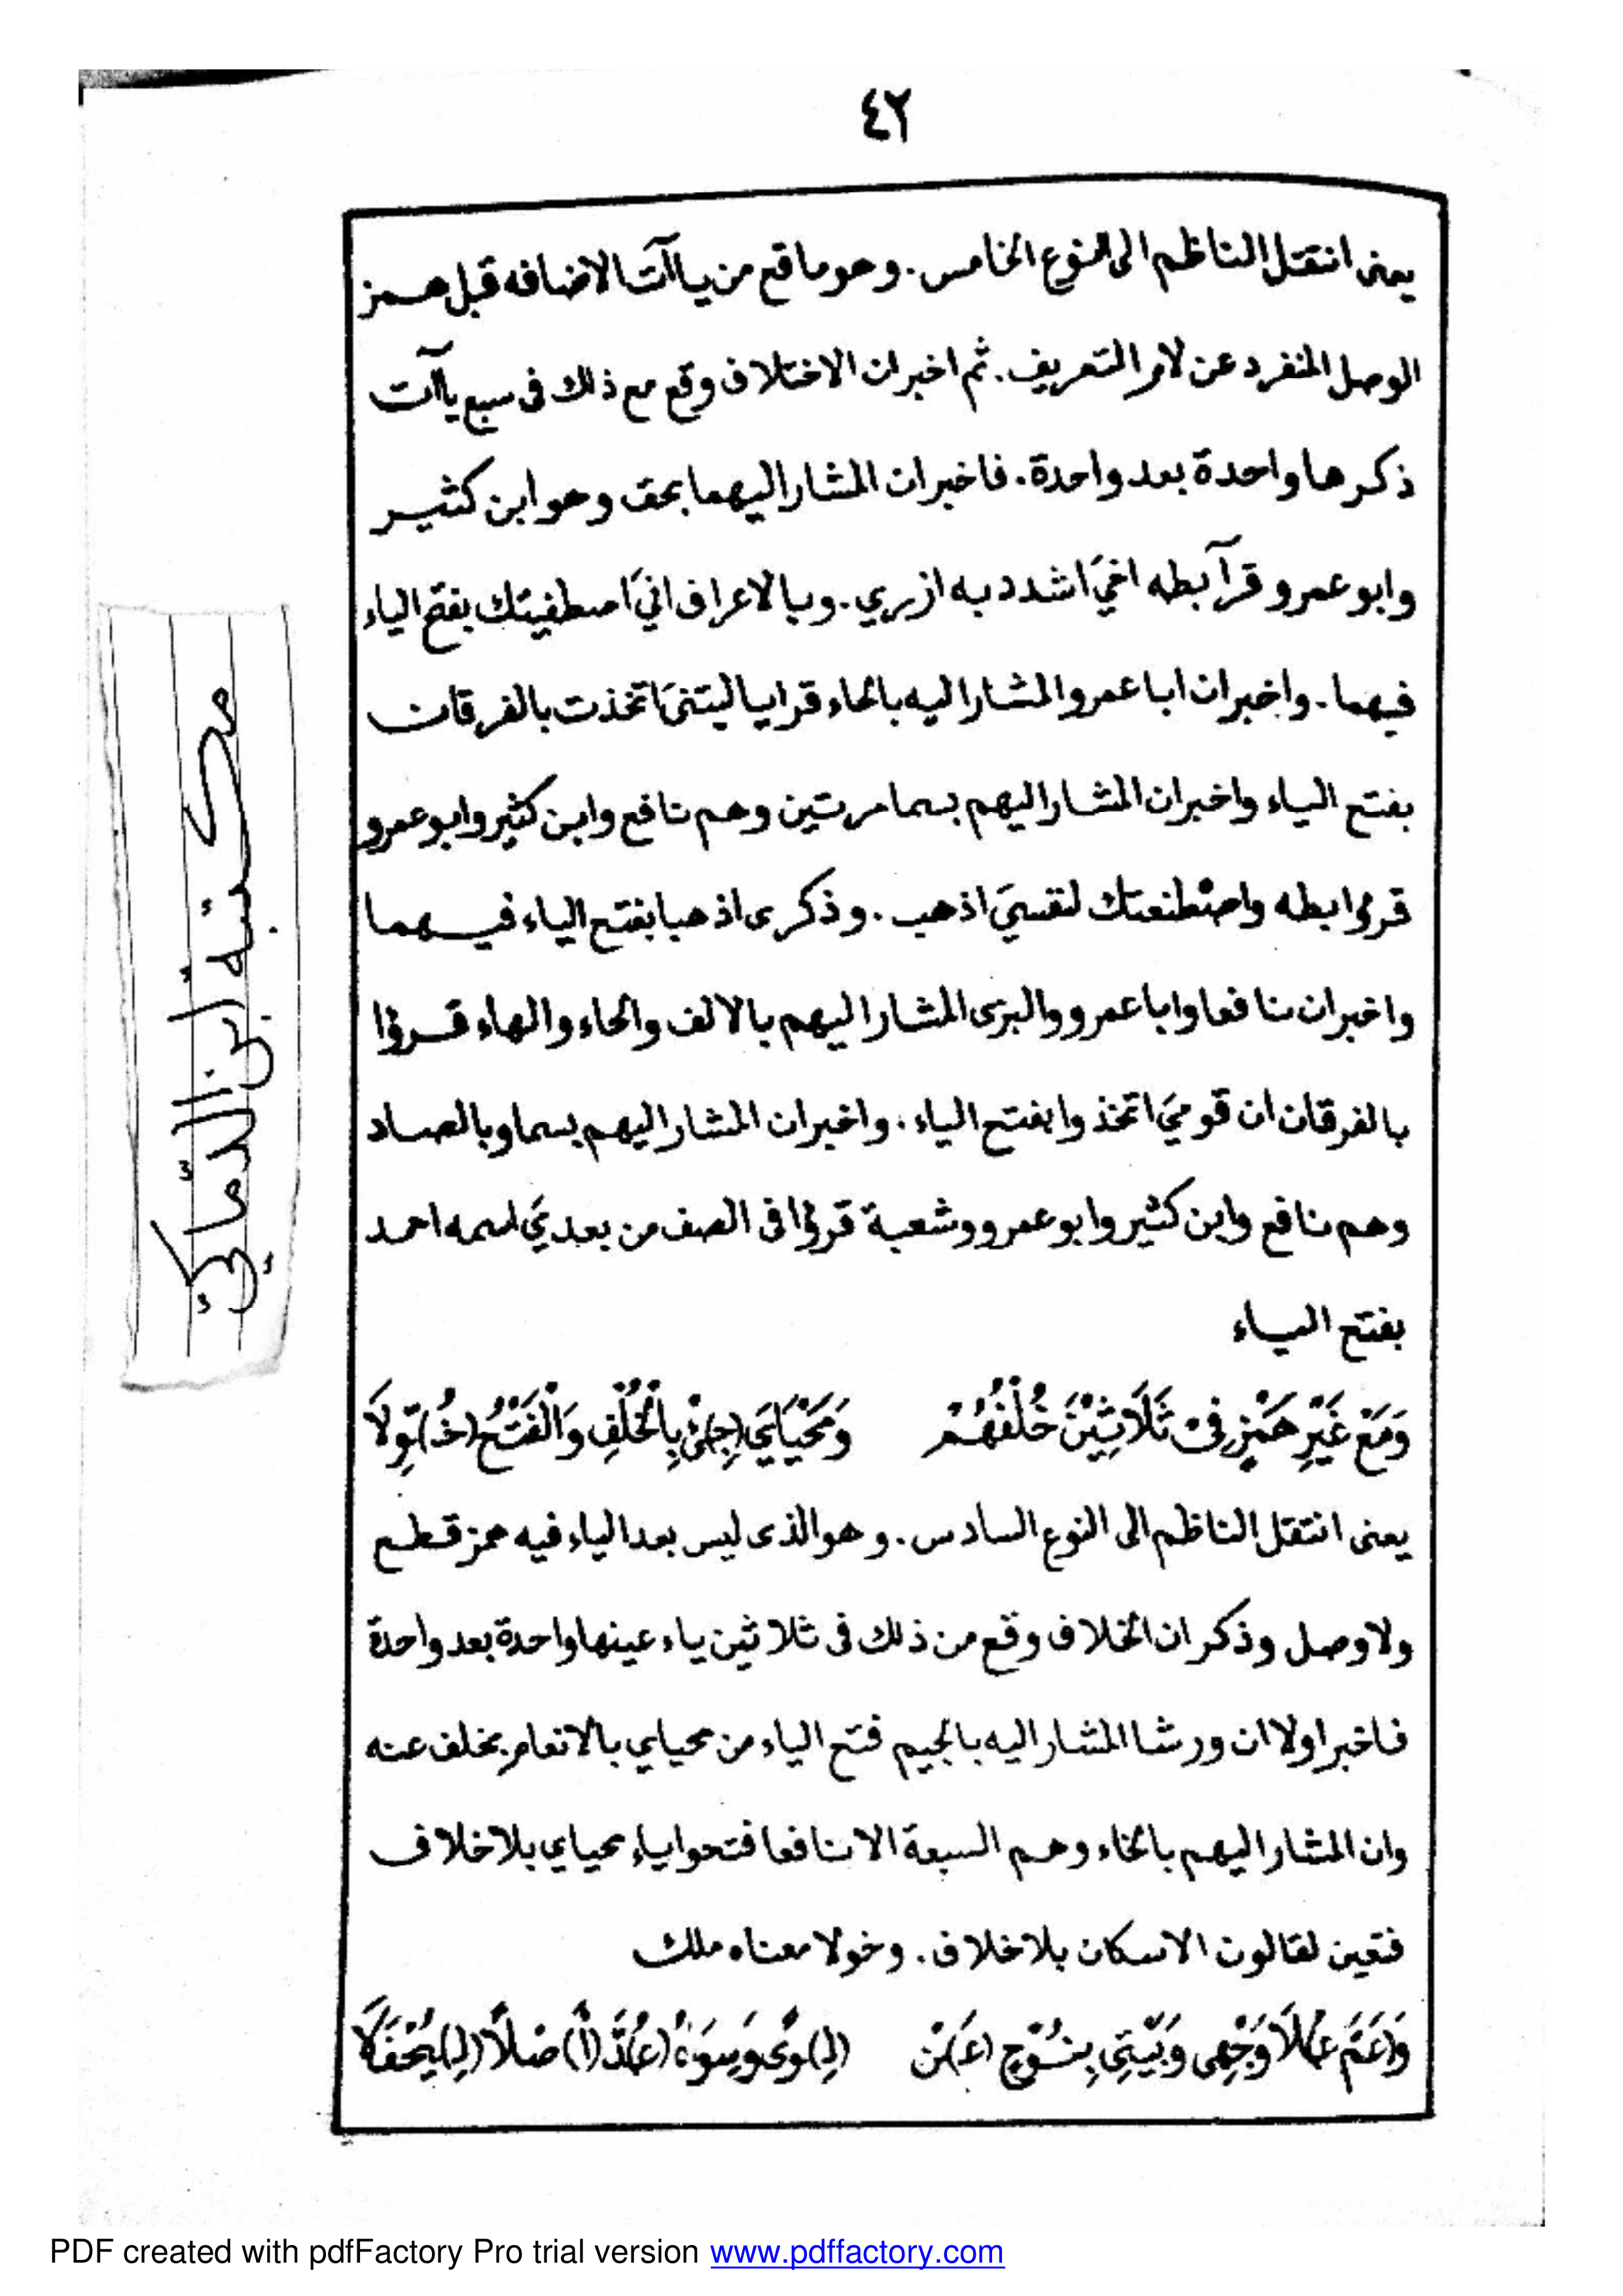 ٤٢
يعنى انتقل الناظم الى النوع الخامس. وهو ماقع من ياآت الاضافه قبل همز
الوصل المنفرد عن لام التعريف. ثم اخبر ان الاختلاف وقع مع ذلك فى سبع ياآت
ذكرها واحدة بعد واحدة. فاخبر ان المشار اليهما بحق وهو ابن كثير
وابو عمرو قرآ بطه اخيَ اشدد به ازري. وبالاعراف انيَ اصطفيتك بفتح الياء
فيهما. واخبر ان ابا عمرو المشار اليه بالحاء قرا ياليتنىَ اتخذت بالفرقان
بفتح الياء واخبر ان المشار اليهم بسما مرتين وهم نافع وابن كثير وابو عمرو
قرؤا بطه واصْطنعتك لنفسيَ اذهب. وذكرى اذهبا بفتح الياء فيهما
واخبر ان نافعا وابا عمرو والبزى المشار اليهم بالالف والحاء والهاء قرؤا
بالفرقان ان قوميَ اتخذوا بفتح الياء. واخبر ان المشار اليهم بسما وبالصاد
وهم نافع وابن كثير وابو عمرو وشعبة قرؤا فى الصف من بعديَ اسمه احمد
بفتح الياء
وَمَعْ غَيْرِ هَمْزٍ فِى ثَلَاثِيْنَ خُلْفُهُمْ وَمَحْيَايَ (جِ)ئْ بِالْخُلْفِ وَالْفَتْحُ (خُ)وِّلَا
يعنى انتقل الناظم الى النوع السادس. وهو الذى ليس بعد الياء فيه همز قطع
ولا وصل وذكر ان الخلاف وقع من ذلك فى ثلاثين ياء عينها واحدة بعد واحدة
فاخبر اولا ان ورشا المشار اليه بالجيم فتح الياء من محياي بالانعام بخلف عنه
وان المشار اليهم بالخاء وهم السبعة الا نافعا فتحوا ياء محياي بلا خلاف
فتعين لقالون الاسكان بلا خلاف. وخولا معناه ملك
وَ(عَمَّ عُ)لًا وَجْهِى وَبَيْتِي بِنُوْحٍ (عَ)نْ (لِ)وًى وَسِوَاهُ (عُ)دَّ (أَ)صْلًا (لِ)يُحْفَلَا
مكتبة ابن الدّماكيّ
PDF created with pdfFactory Pro trial version www.pdffactory.com